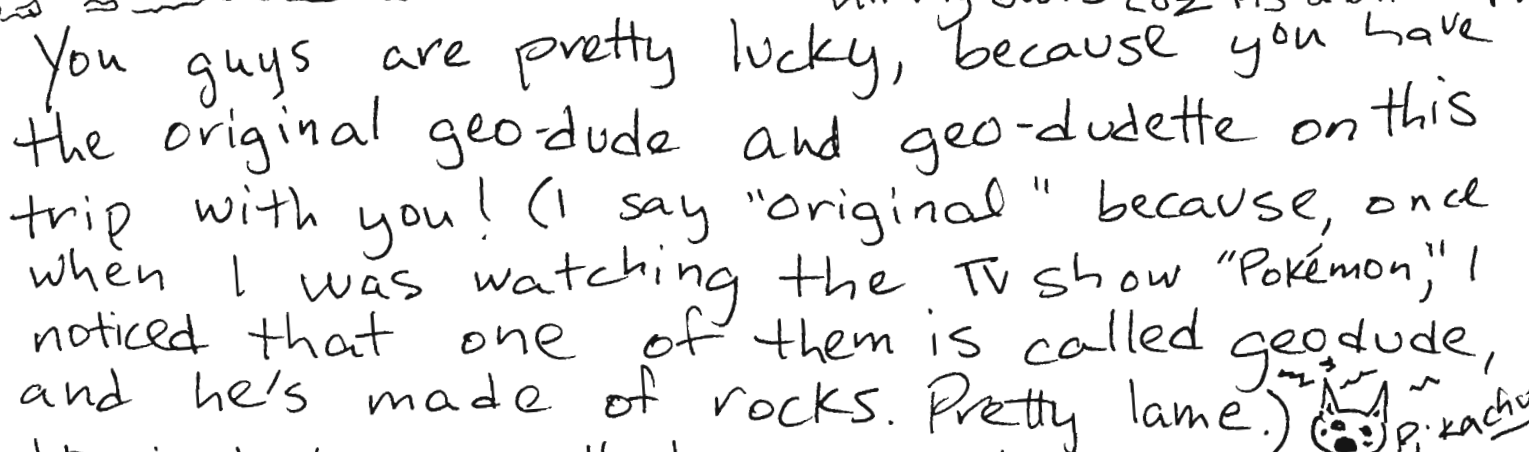 You guys are pretty lucky, because you have
the original geo-dude and geo-dudette on this
trip with you! (I say "original" because, once
when I was watching the TV show "Pokémon," I
noticed that one of them is called geodude,
and he's made of rocks. Pretty lame.) Pikachu